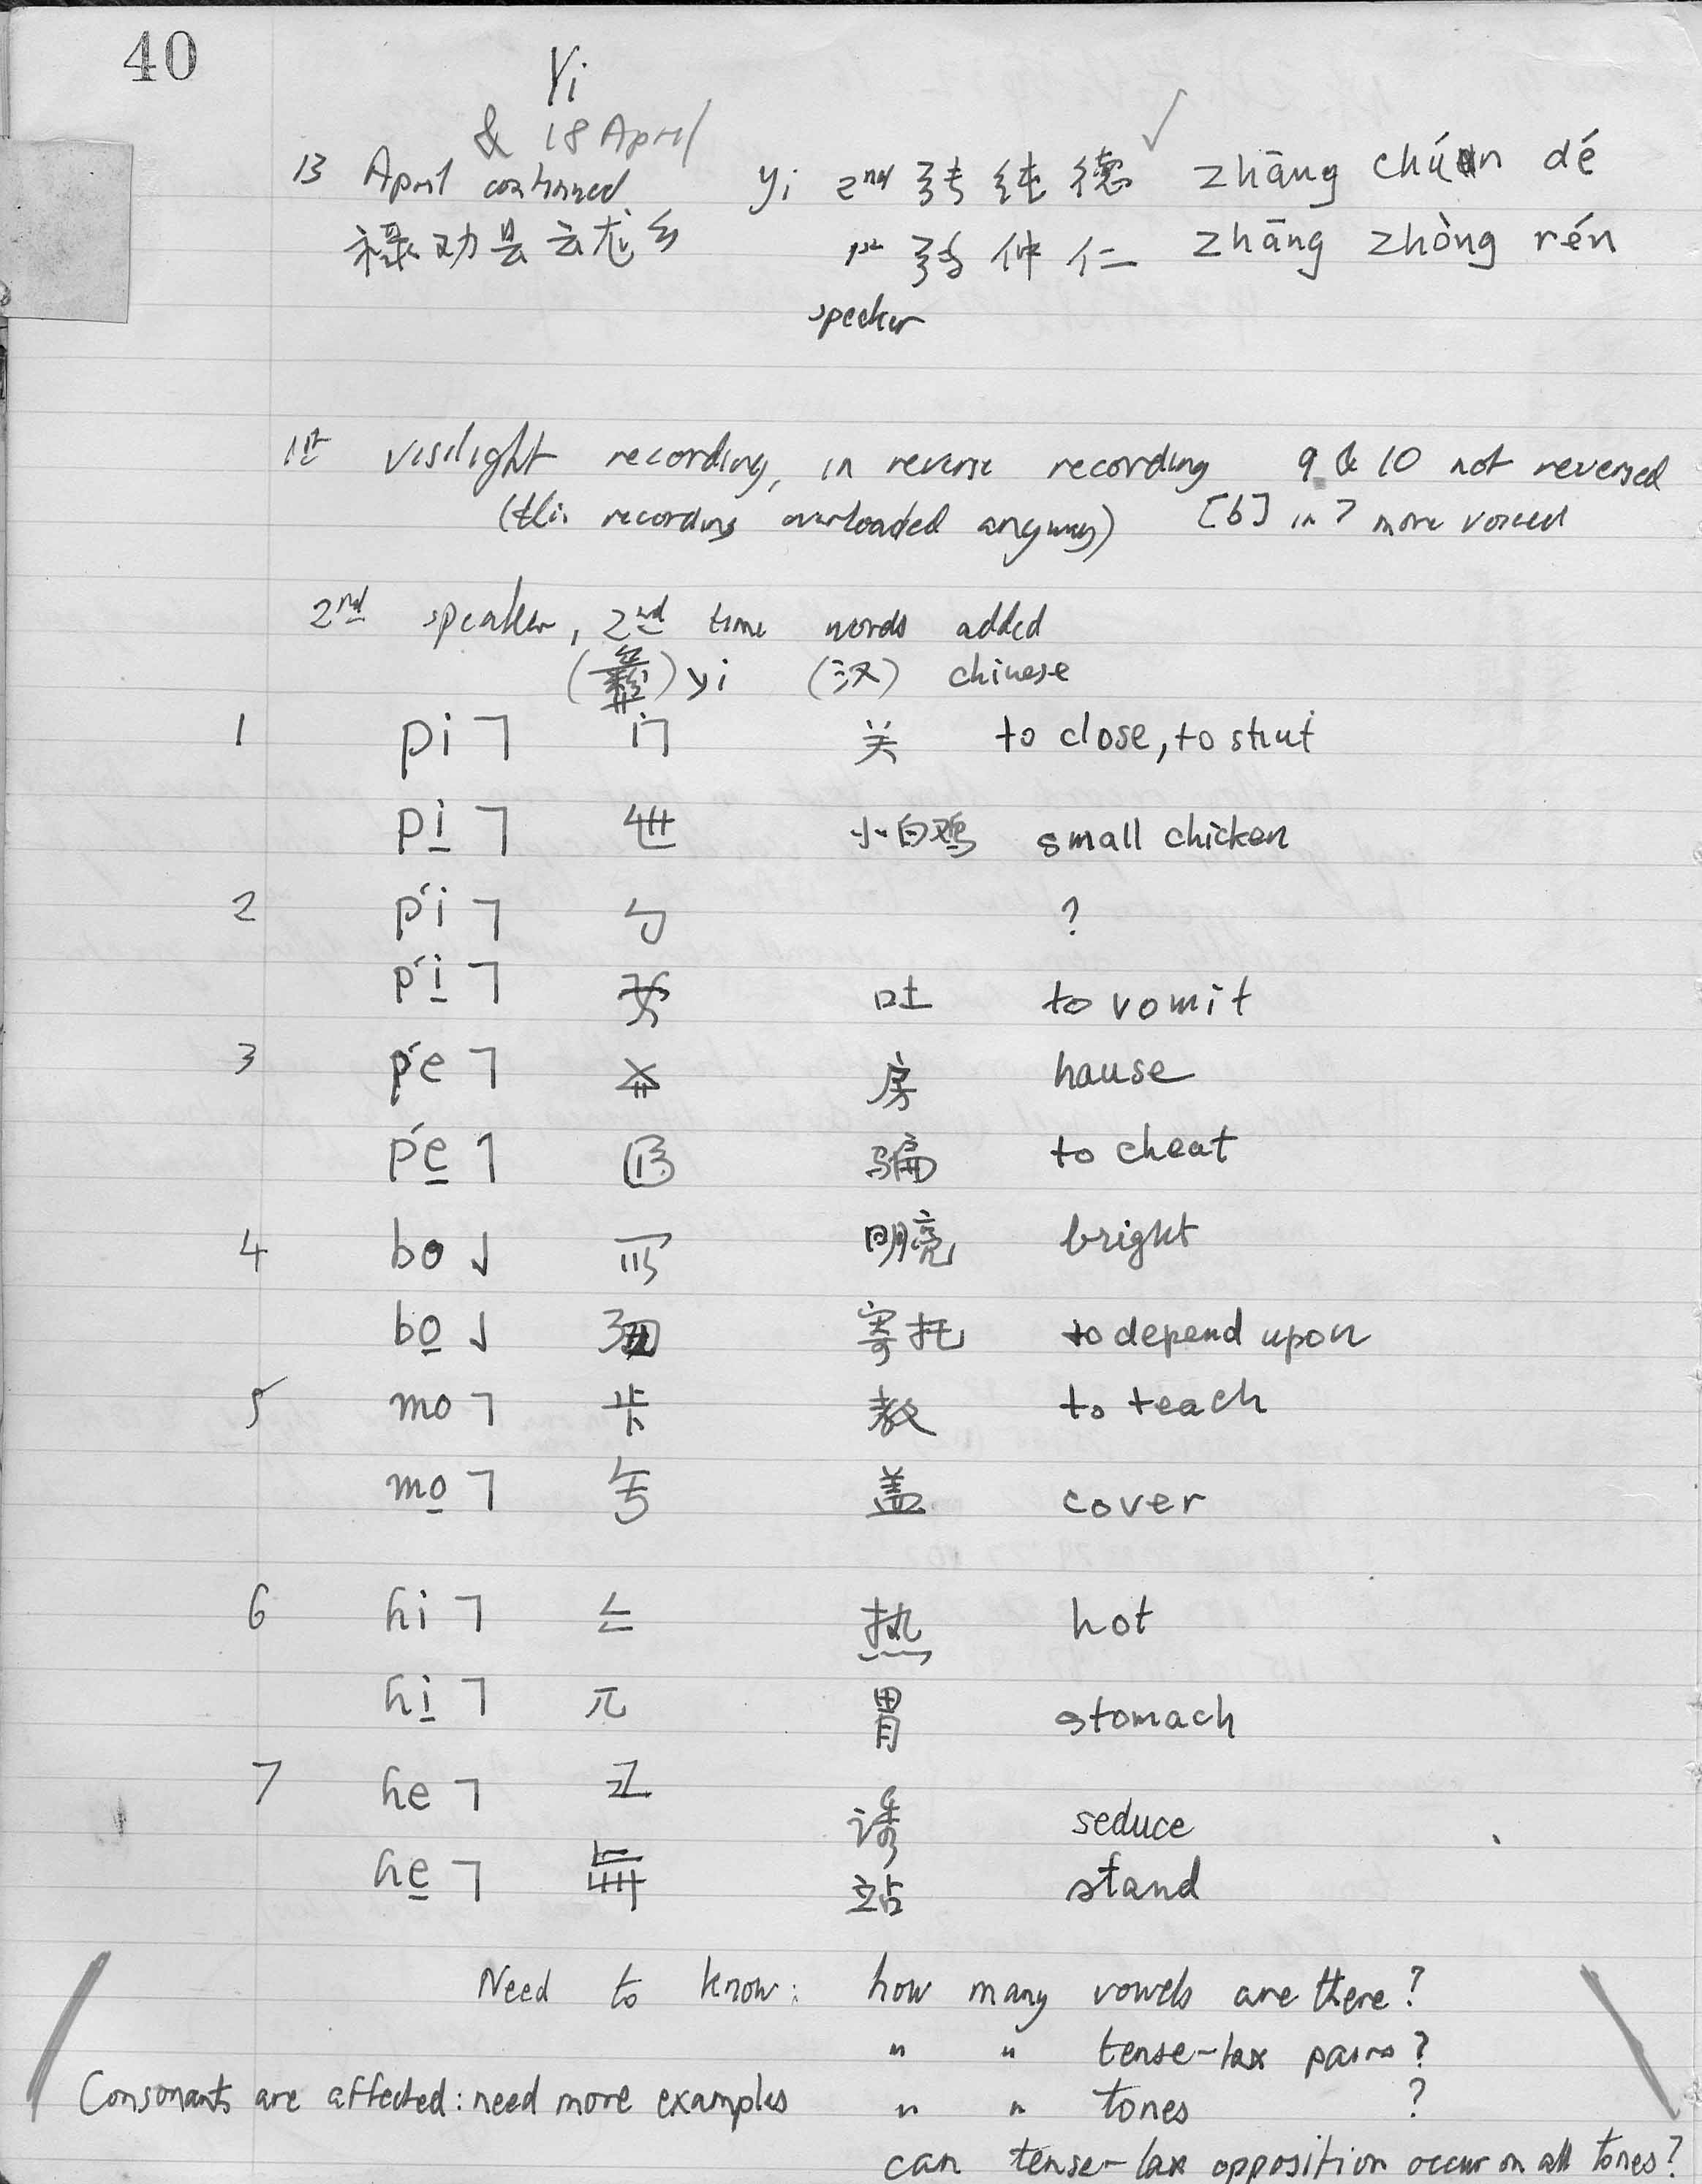 40
Yi
& 18 April
13 April continued
禄劝县云龙乡
yi 2nd 张纯德 zhāng chún dé
1st 张仲仁 zhāng zhòng rén
speaker
1st Visilight recording, in reverse recording 9 & 10 not reversed
(this recording overloaded anyway) [b] in 7 more voiced
2nd speaker, 2nd time words added
(彝) yi (汉) chinese
1 pi ˥ 关 to close, to shut
pi̱ ˥ 小白鸡 small chicken
2 p‘i ˥ ?
p‘i̱ ˥ 吐 to vomit
3 p‘e ˥ 房 hause
p‘e̱ ˥ 骗 to cheat
4 bo ˩ 明亮 bright
bo̱ ˩ 寄托 to depend upon
5 mo ˥ 教 to teach
mo̱ ˥ 盖 cover
6 hi ˥ 热 hot
hi̱ ˥ 胃 stomach
7 he ˥ 诱 seduce
he̱ ˥ 站 stand
Need to know: how many vowels are there?
" " tense-lax pairs?
Consonants are affected: need more examples " " tones ?
can tense-lax opposition occur on all tones?